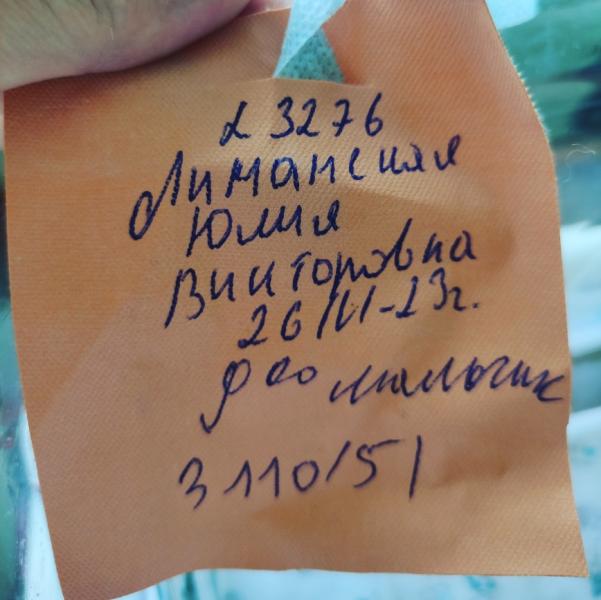 3276
Лиманская
Юлия
Викторовна
26/VI-23г.
мальчик
3110/51